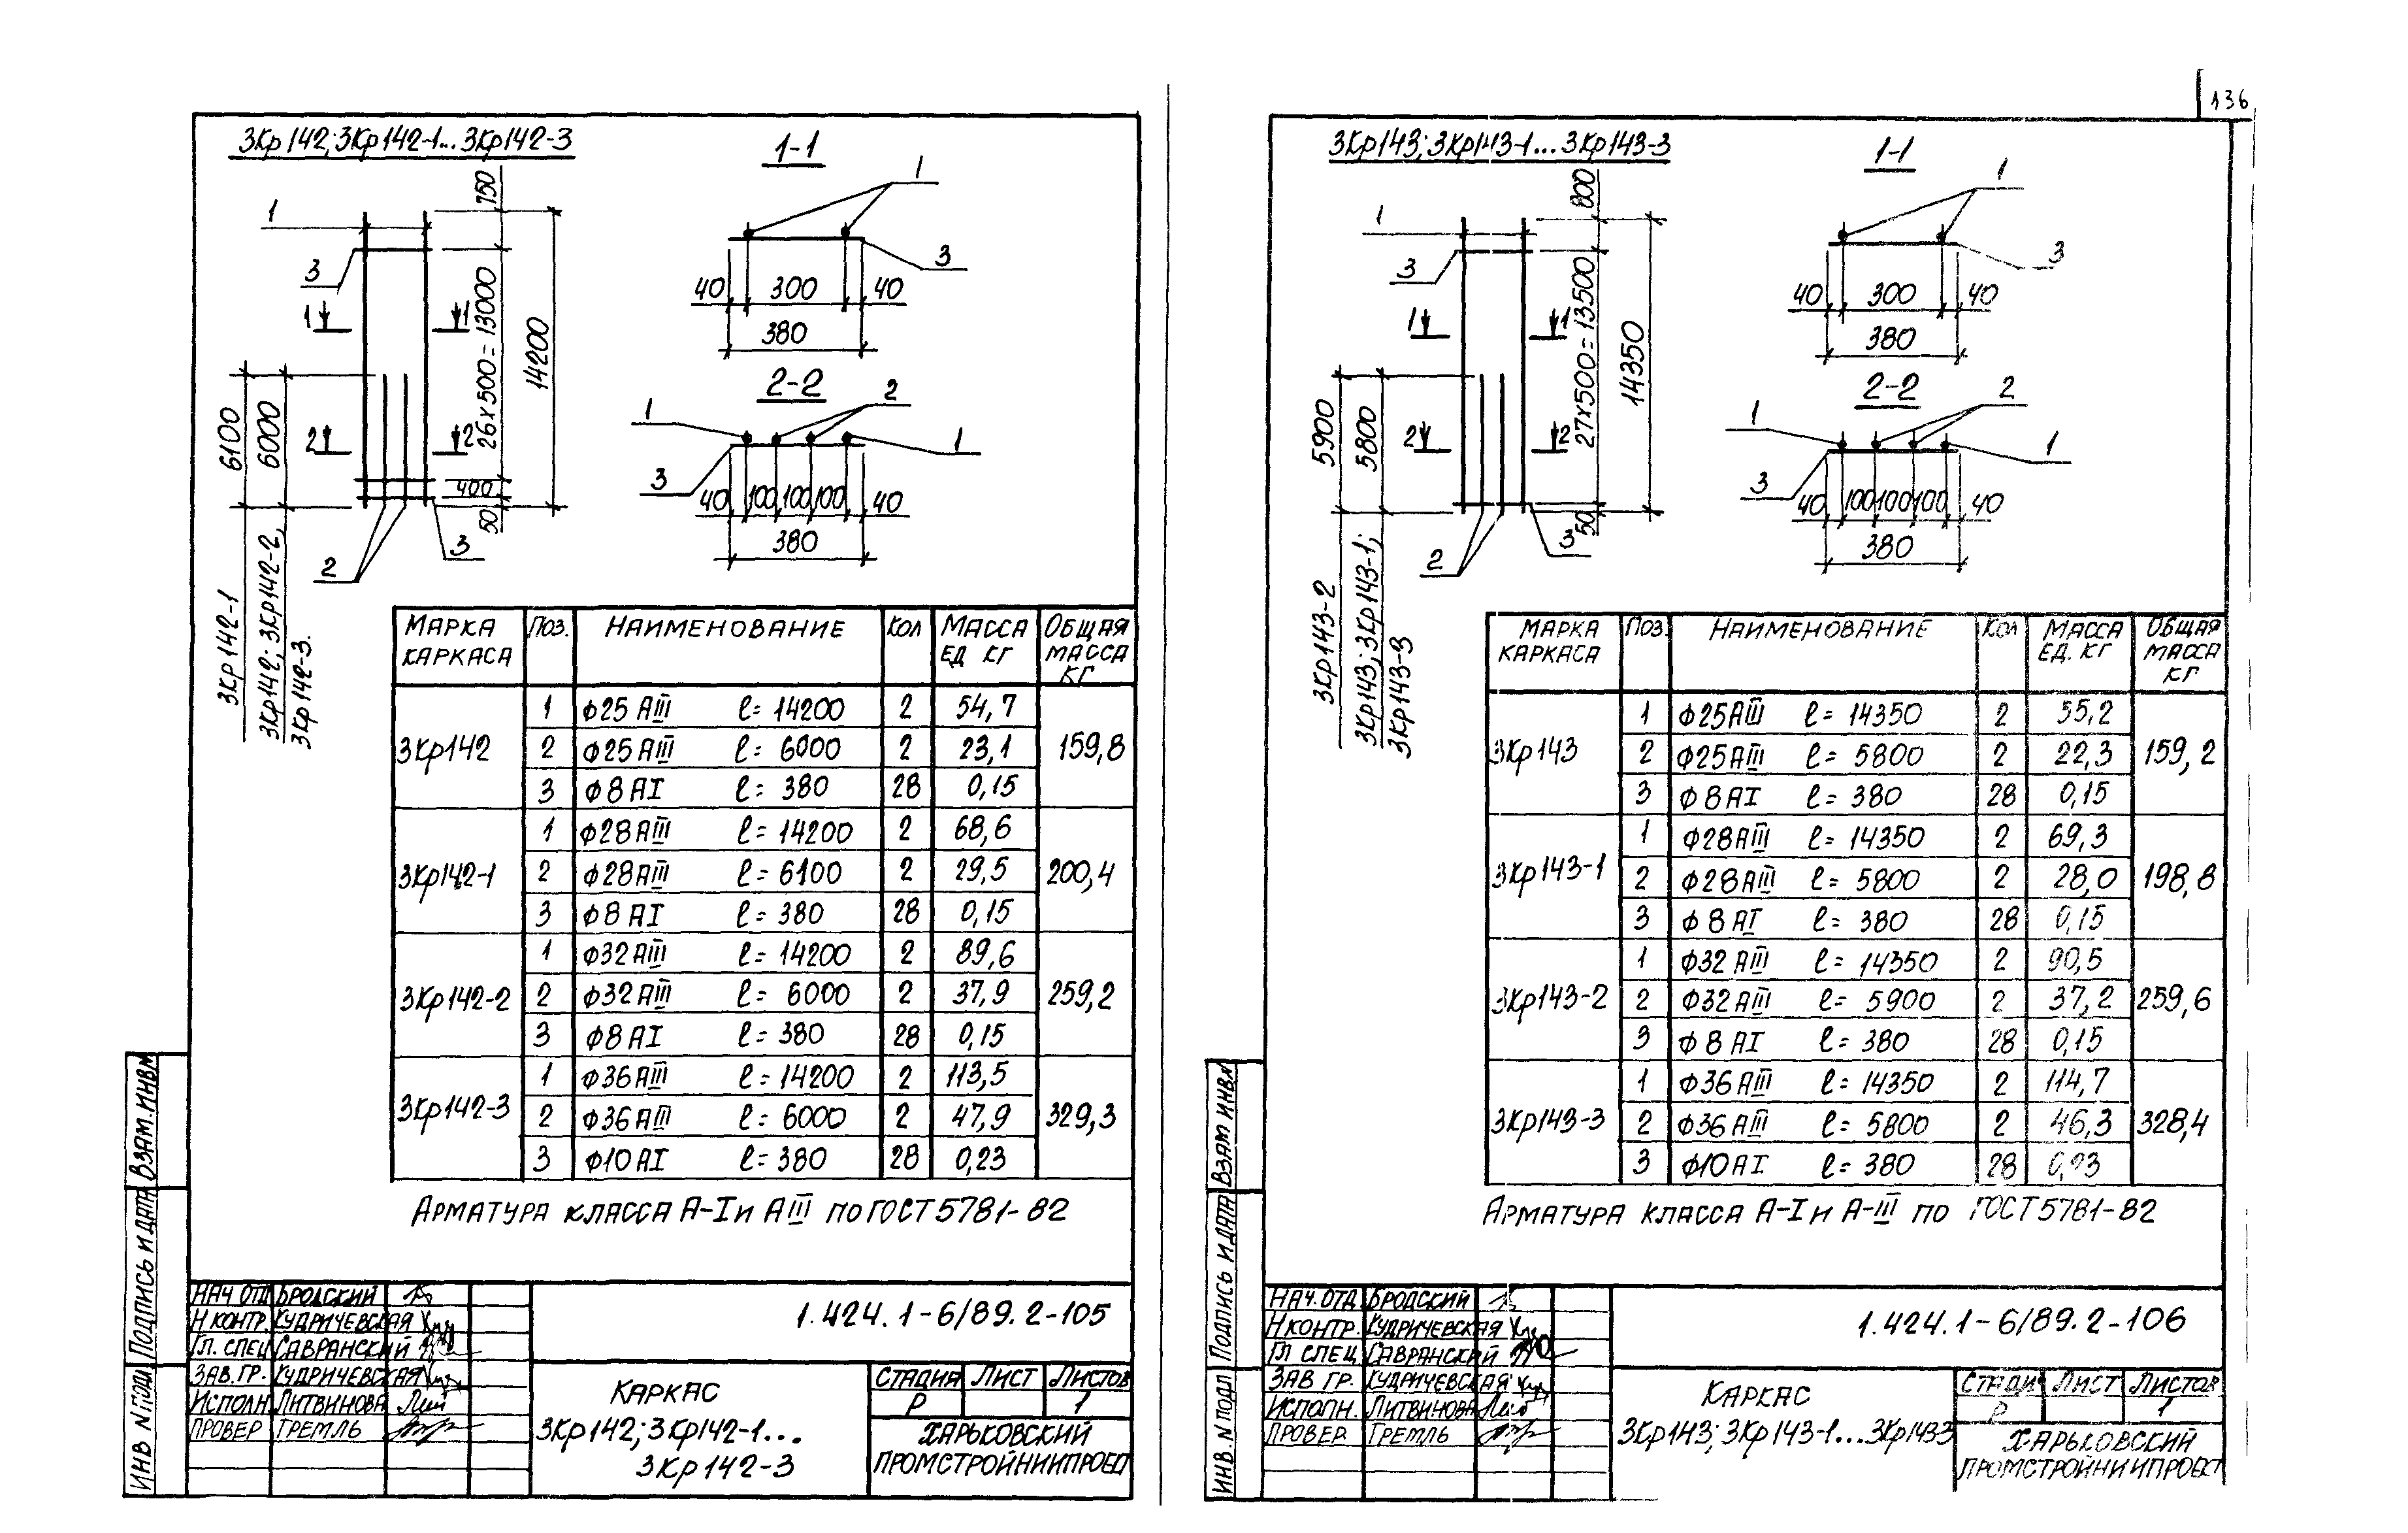 136
3Кр142; 3Кр142-1... 3Кр142-3
1-1
1
3
40 300 40
380
2-2
1 2
1
3
40 100 100 100 40
380
1
3
1 1
2 2
2
3
750
26х500=13000
400
50
14200
6100
6000
3Кр142-1
3Кр142; 3Кр142-2,
3Кр142-3.
МАРКА КАРКАСА ПОЗ. НАИМЕНОВАНИЕ КОЛ МАССА ЕД КГ ОБЩАЯ МАССА КГ
3Кр142 1 Ф25 АIII ℓ=14200 2 54,7 159,8
2 Ф25 АIII ℓ=6000 2 23,1
3 Ф8 АI ℓ=380 28 0,15
3Кр142-1 1 Ф28 АIII ℓ=14200 2 68,6 200,4
2 Ф28 АIII ℓ=6100 2 29,5
3 Ф8 АI ℓ=380 28 0,15
3Кр142-2 1 Ф32 АIII ℓ=14200 2 89,6 259,2
2 Ф32 АIII ℓ=6000 2 37,9
3 Ф8 АI ℓ=380 28 0,15
3Кр142-3 1 Ф36 АIII ℓ=14200 2 113,5 329,3
2 Ф36 АIII ℓ=6000 2 47,9
3 Ф10 АI ℓ=380 28 0,23
АРМАТУРА КЛАССА А-I и АIII ПО ГОСТ 5781-82
ВЗАМ. ИНВ№
ПОДПИСЬ И ДАТА
ИНВ № ПОДЛ
НАЧ ОТД БРОДСКИЙ
Н КОНТР. КУДРИЧЕВСКАЯ
ГЛ. СПЕЦ САВРАНСКИЙ
ЗАВ. ГР. КУДРИЧЕВСКАЯ
ИСПОЛН. ЛИТВИНОВА
ПРОВЕР ГРЕМЛЬ
1.424.1-6/89.2-105
КАРКАС
3Кр142; 3Кр142-1...
3Кр142-3
СТАДИЯ ЛИСТ ЛИСТОВ
Р 1
ХАРЬКОВСКИЙ
ПРОМСТРОЙНИИПРОЕКТ
3Кр143; 3Кр143-1... 3Кр143-3
1-1
1
3
40 300 40
380
2-2
1 2
1
3
40 100 100 100 40
380
1
3
1 1
2 2
2
3
800
27х500=13500
50
14350
5900
5800
3Кр143-2
3Кр143; 3Кр143-1;
3Кр143-3
МАРКА КАРКАСА ПОЗ. НАИМЕНОВАНИЕ КОЛ МАССА ЕД. КГ ОБЩАЯ МАССА КГ
3Кр143 1 Ф25 АIII ℓ=14350 2 55,2 159,2
2 Ф25 АIII ℓ=5800 2 22,3
3 Ф8 АI ℓ=380 28 0,15
3Кр143-1 1 Ф28 АIII ℓ=14350 2 69,3 198,8
2 Ф28 АIII ℓ=5800 2 28,0
3 Ф8 АI ℓ=380 28 0,15
3Кр143-2 1 Ф32 АIII ℓ=14350 2 90,5 259,6
2 Ф32 АIII ℓ=5900 2 37,2
3 Ф8 АI ℓ=380 28 0,15
3Кр143-3 1 Ф36 АIII ℓ=14350 2 114,7 328,4
2 Ф36 АIII ℓ=5800 2 46,3
3 Ф10 АI ℓ=380 28 0,23
АРМАТУРА КЛАССА А-I и А-III ПО ГОСТ 5781-82
ВЗАМ ИНВ№
ПОДПИСЬ И ДАТА
ИНВ. № ПОДЛ
НАЧ. ОТД БРОДСКИЙ
Н КОНТР. КУДРИЧЕВСКАЯ
ГЛ СПЕЦ САВРАНСКИЙ
ЗАВ ГР. КУДРИЧЕВСКАЯ
ИСПОЛН. ЛИТВИНОВА
ПРОВЕР ГРЕМЛЬ
1.424.1-6/89.2-106
КАРКАС
3Кр143; 3Кр143-1...3Кр1433
СТАДИ ЛИСТ ЛИСТОВ
Р 1
ХАРЬКОВСКИЙ
ПРОМСТРОЙНИИПРОЕКТ